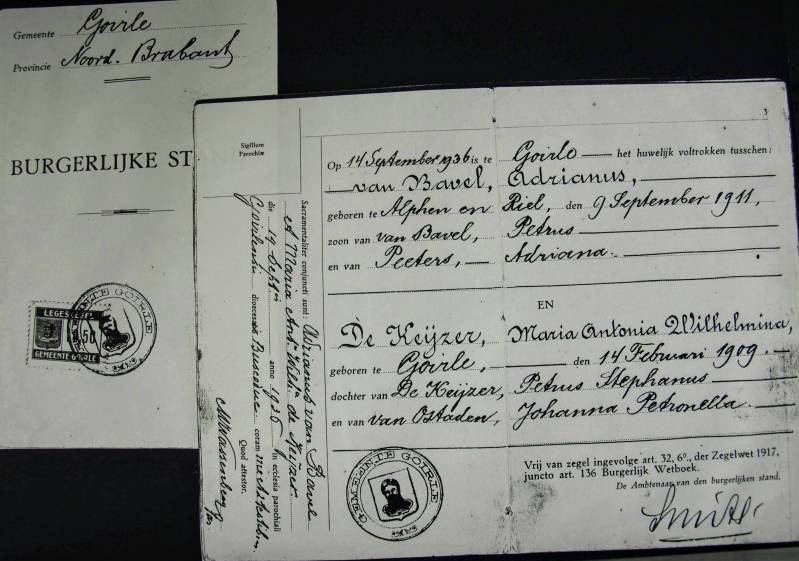 Gemeente Goirle
Provincie Noord. Brabant
BURGERLIJKE ST
LEGES
50
GEMEENTE GOIRLE
GEMEENTE GOIRLE
3
Sigillum
Parochiæ
Op 14 September 1936 is te Goirle het huwelijk voltrokken tusschen:
van Bavel, Adrianus,
geboren te Alphen en Riel, den 9 September 1911,
zoon van van Bavel, Petrus
en van Peeters, Adriana.
EN
De Keijzer, Maria Antonia Wilhelmina,
geboren te Goirle, den 14 Februari 1909.
dochter van De Keijzer, Petrus Stephanus
en van van Ostaden, Johanna Petronella.
GEMEENTE GOIRLE
Vrij van zegel ingevolge art. 32, 6º., der Zegelwet 1917,
juncto art. 136 Burgerlijk Wetboek.
De Ambtenaar van den burgerlijken stand,
Sacramentaliter conjuncti sunt: Adrianus van Bavel
et Maria Ant. Wilh. de Keijzer
die 14 Sept. anno 1936 in ecclesia parochiali
dioecesis Buscoduc. coram me
Quod attestor,